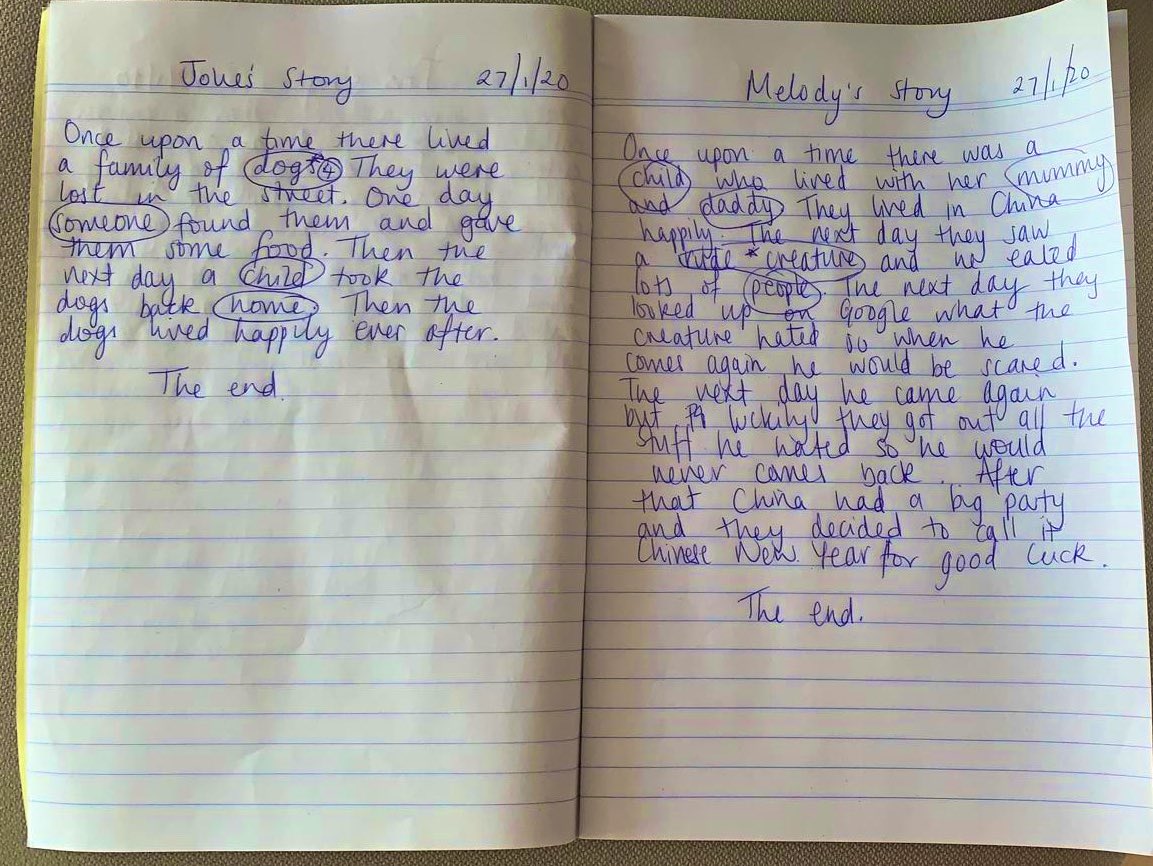 Jolie's Story 27/1/20
Once upon a time there lived
a family of dogs*④ They were
lost in the street. One day
someone found them and gave
them some food. Then the
next day a child took the
dogs back home. Then the
dogs lived happily ever after.
The end.
Melody's Story 27/1/20
Once upon a time there was a
child who lived with her mummy
and daddy They lived in China
happily. The next day they saw
a *creature and he eated
lots of people The next day they
looked up on Google what the
creature hated so when he
comes again he would be scared.
The next day he came again
but luckily they got out all the
stuff he hated so he would
never comes back. After
that China had a big party
and they decided to call it
Chinese New Year for good luck.
The end.